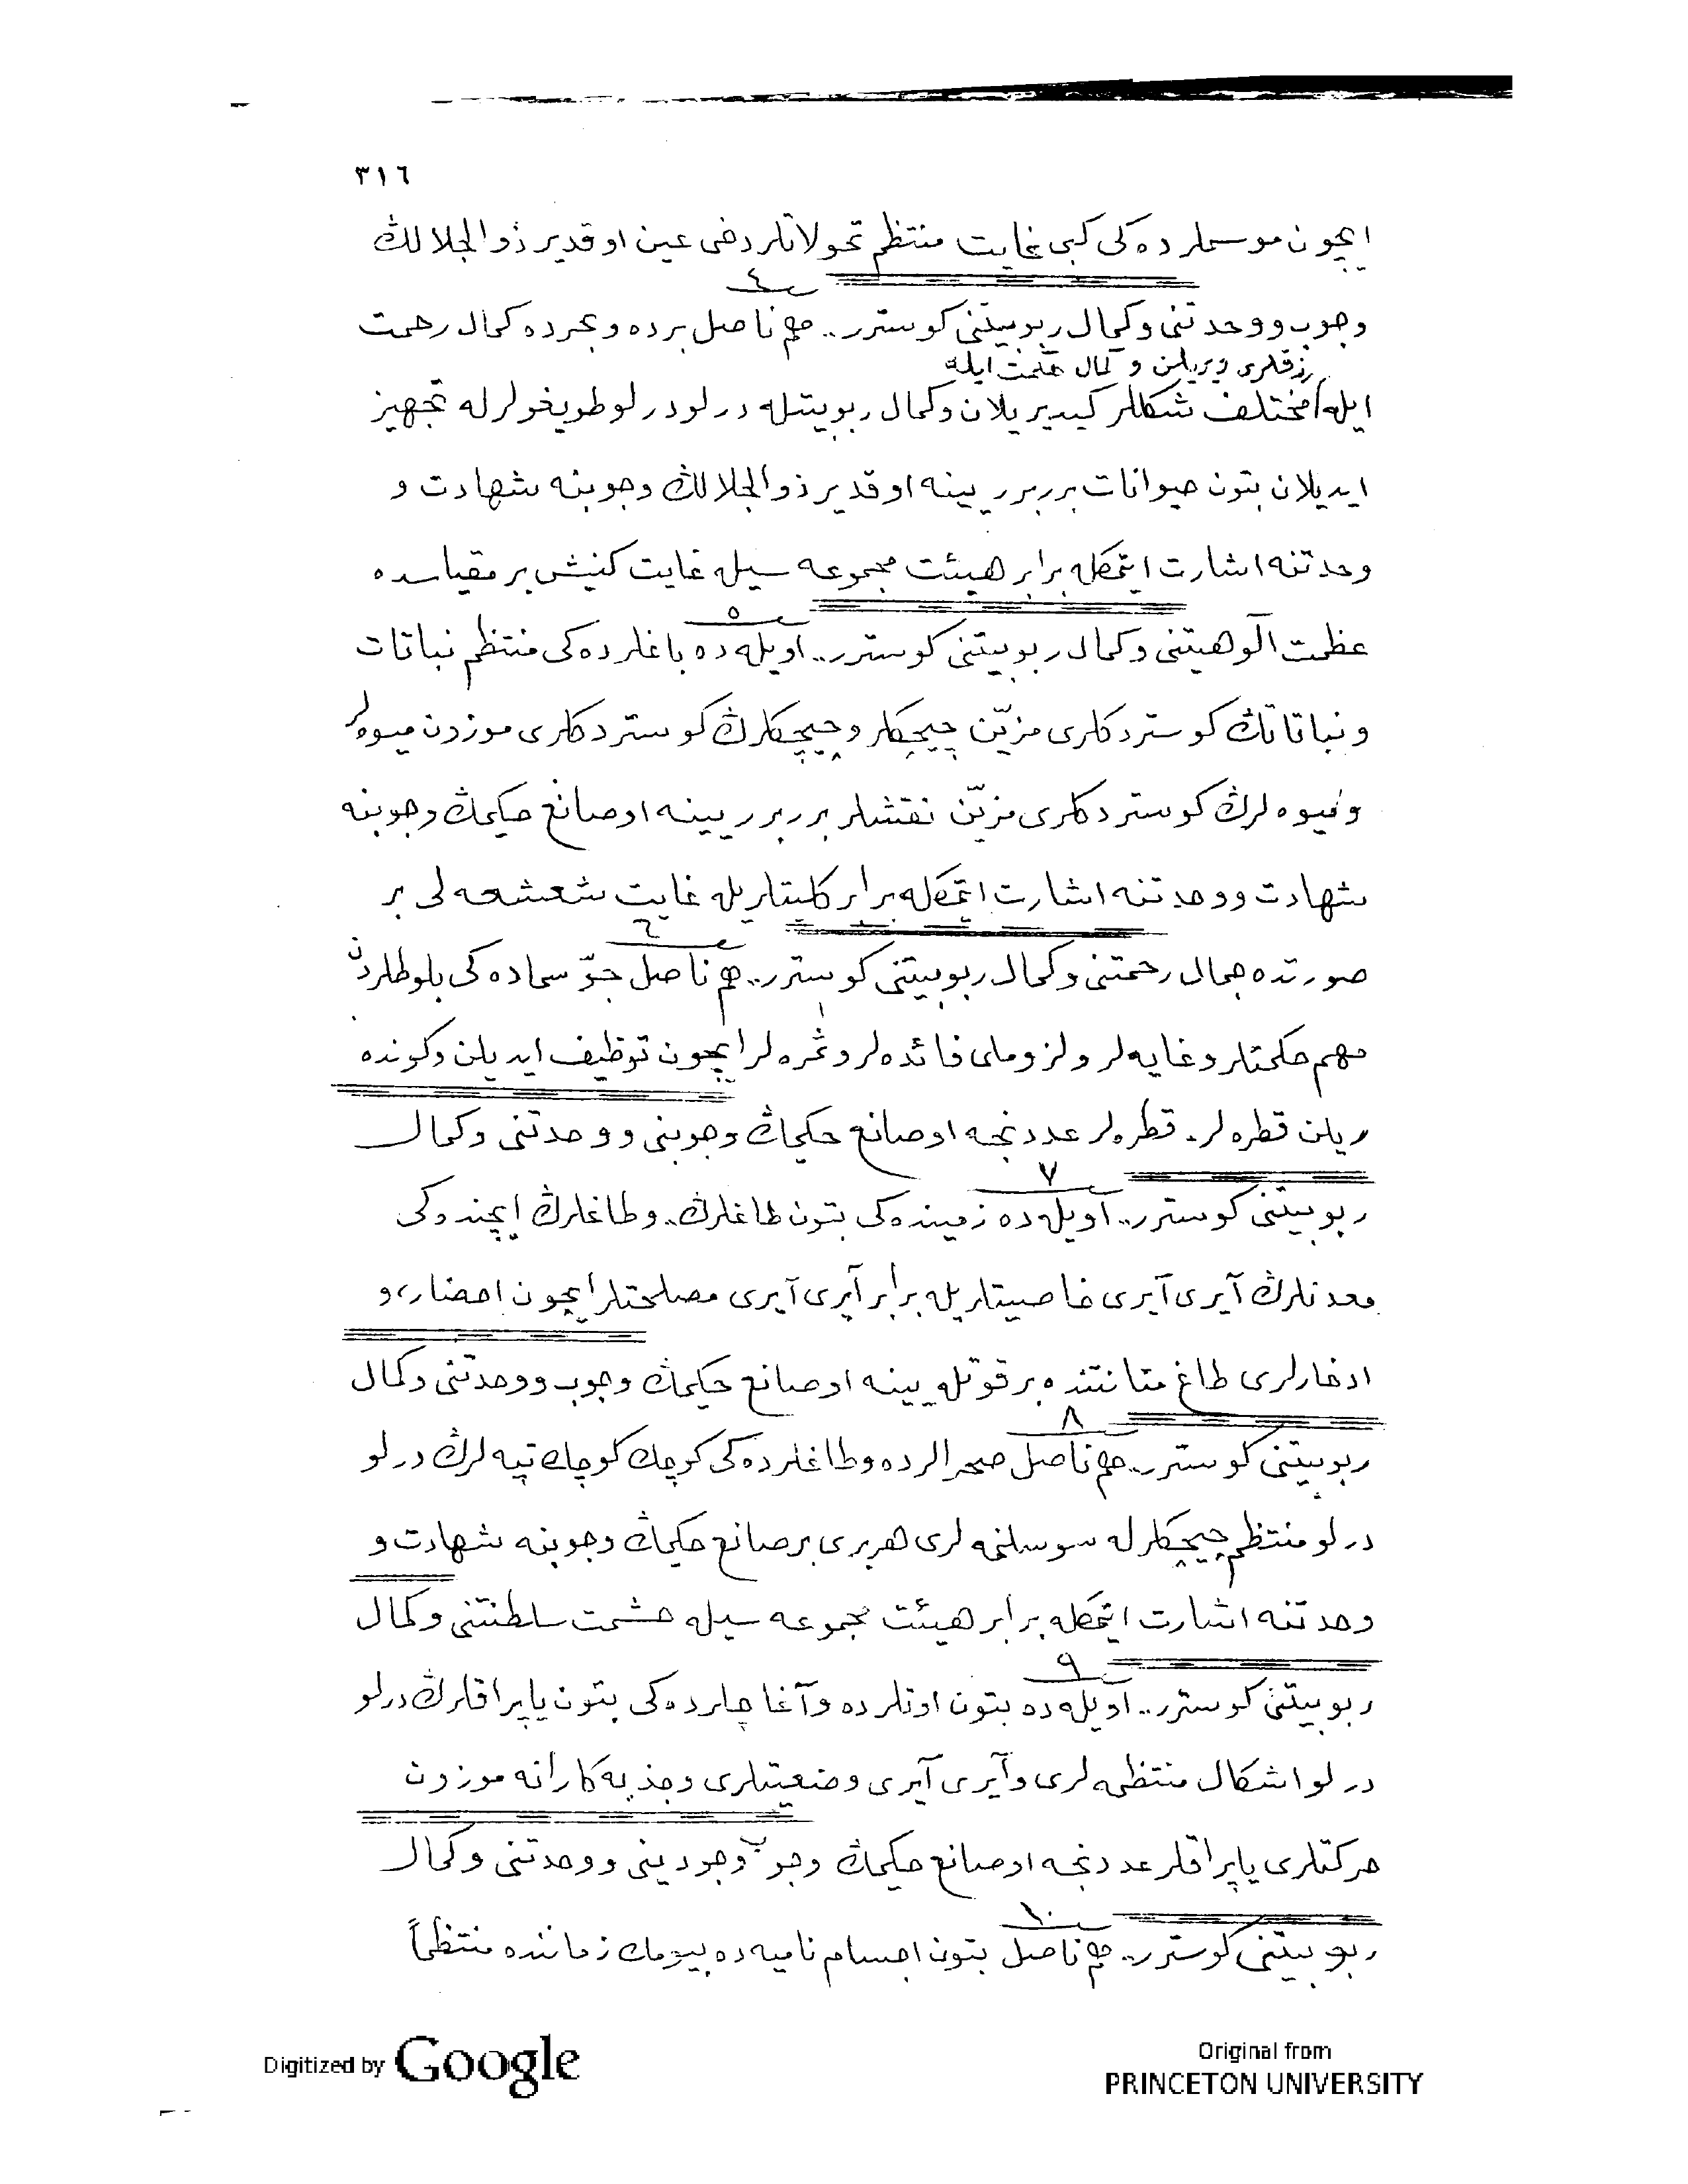 ٣١٦
ايچون موسملرده‌كى كبى غايت منتظم تحولاتلر دخى عين او قدير ذوالجلالڭ
٤
وجوب و وحدتنى و كمال ربوبيتنى كوسترر.. هم ناصل برده و بحرده كمال رحمت
رزقلرى ويريلن و كمال حكمت ايله
ايله مختلف شكللر كيديريلان و كمال ربوبيتله درلو درلو طويغولرله تجهيز
ايديلان بتون حيوانات برر برر يينه او قدير ذوالجلالڭ وجوبنه شهادت و
وحدتنه اشارت ايتمكله برابر هيئت مجموعه سيله غايت كنيش بر مقياسده
٥
عظمت الوهيتنى و كمال ربوبيتنى كوسترر.. اويله ده باغلرده‌كى منتظم نباتات
و نباتاتڭ كوستردكلرى مزيّن چيچكلر و چيچكلرڭ كوستردكلرى موزون ميوه‌لر
و ميوه لرڭ كوستردكلرى مزيّن نقشلر برر برر يينه او صانع حكيمڭ وجوبنه
شهادت و وحدتنه اشارت ايتمكله برابر كليتلريله غايت شعشعه لى بر
٦
صورتده جمال رحمتنى و كمال ربوبيتنى كوسترر.. هم ناصل جوّ سماده كى بلوطلردن
مهم حكمتلر و غايه‌لر و لزوملى فائده‌لر و ثمره لر ايچون توظيف ايديلن و كونده
ريلن قطره لر. قطره‌لر عددنجه او صانع حكيمڭ وجوبنى و وحدتنى و كمال
٧
ربوبيتنى كوسترر.. اويله ده زمينده‌كى بتون طاغلرڭ.. و طاغلرڭ ايچنده كى
معدنلرڭ آيرى آيرى خاصيتلريله برابر آيرى آيرى مصلحتلر ايچون احضار، و
ادخارلرى طاغ متانتنده بر قوتله يينه او صانع حكيمڭ وجوب و وحدتنى و كمال
٨
ربوبيتنى كوسترر.. هم ناصل صحرالرده و طاغلرده‌كى كوچك كوچك تپه لرڭ درلو
درلو منتظم چيچكلرله سوسلنمه لرى هربرى بر صانع حكيمڭ وجوبنه شهادت و
وحدتنه اشارت ايتمكله برابر هيئت مجموعه سيله حشمت سلطنتنى و كمال
٩
ربوبيتنى كوسترر.. اويله ده بتون اوتلرده و آغاچلرده‌كى بتون ياپراقلرڭ درلو
درلو اشكال منتظمه لرى و آيرى آيرى وضعيتلرى و جذبه كارانه موزون
حركتلرى ياپراقلر عددنجه او صانع حكيمڭ وجوب وجودينى و وحدتنى و كمال
١٠
ربوبيتنى كوسترر.. هم ناصل بتون اجسام ناميه ده بيومك زماننده منتظماً
Digitized by Google
Original from
PRINCETON UNIVERSITY